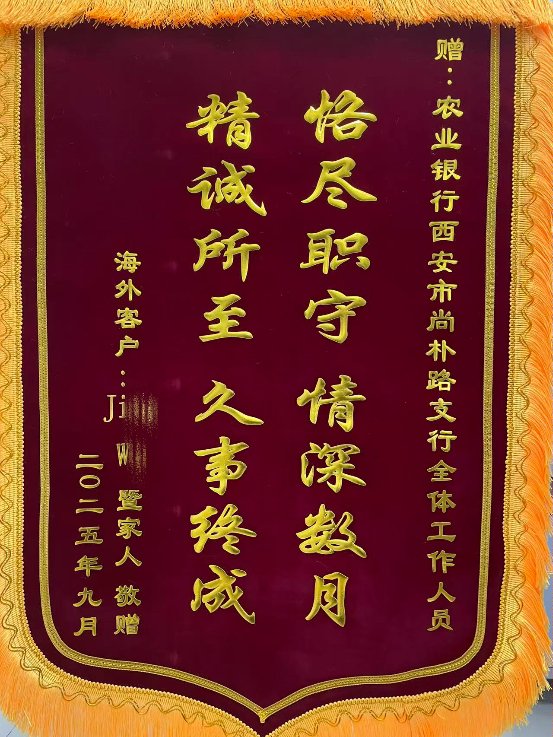 赠：农业银行西安市尚朴路支行全体工作人员
恪尽职守 情深数月
精诚所至 久事终成
海外客户：Ji W 暨家人 敬赠
二〇二五年九月